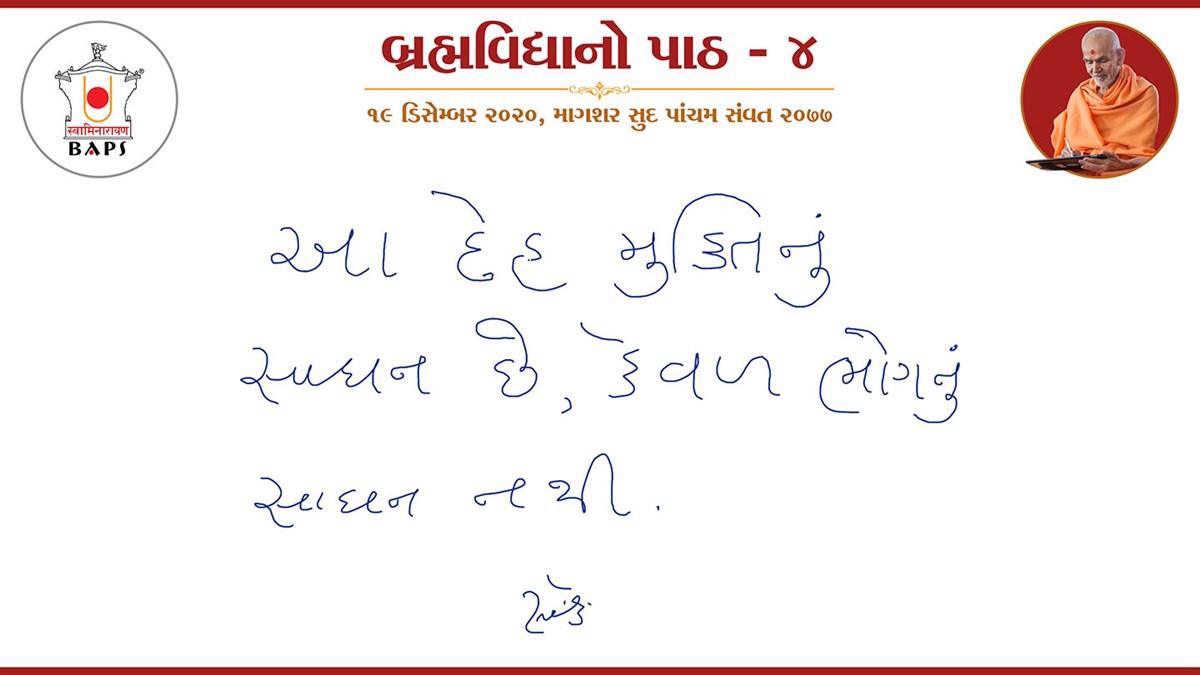 બ્રહ્મવિદ્યાનો પાઠ - ૪
૧૯ ડિસેમ્બર ૨૦૨૦, માગશર સુદ પાંચમ સંવત ૨૦૭૭
स्वामिनारायण
BAPS
આ દેહ મુક્તિનું
સાધન છે, કેવળ ભોગનું
સાધન નથી.